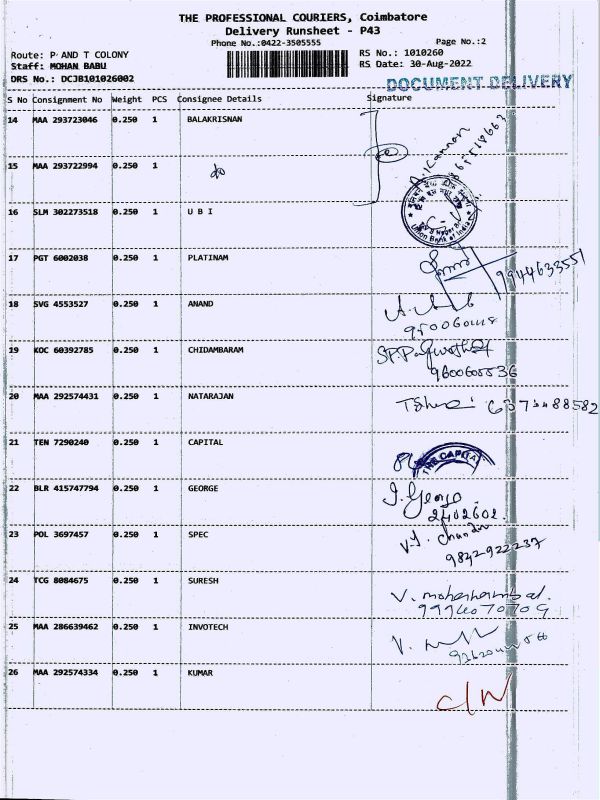 THE PROFESSIONAL COURIERS, Coimbatore
Delivery Runsheet - P43
Phone No.:0422-3505555
Page No.:2
Route: P AND T COLONY
RS No.: 1010260
Staff: MOHAN BABU
RS Date: 30-Aug-2022
DRS No.: DCJB101026002
DOCUMENT DELIVERY
S No Consignment No Weight PCS Consignee Details Signature
14 MAA 293723046 0.250 1 BALAKRISNAN
15 MAA 293722994 0.250 1
16 SLM 302273518 0.250 1 U B I
Union Bank of India
17 PGT 6002038 0.250 1 PLATINAM
9944633551
18 SVG 4553527 0.250 1 ANAND
19 KOC 60392785 0.250 1 CHIDAMBARAM
9600605536
20 MAA 292574431 0.250 1 NATARAJAN
21 TEN 7290240 0.250 1 CAPITAL
THE CAPITAL
22 BLR 415747794 0.250 1 GEORGE
2402602.
23 POL 3697457 0.250 1 SPEC
9842922237
24 TCG 8084675 0.250 1 SURESH
25 MAA 286639462 0.250 1 INVOTECH
26 MAA 292574334 0.250 1 KUMAR